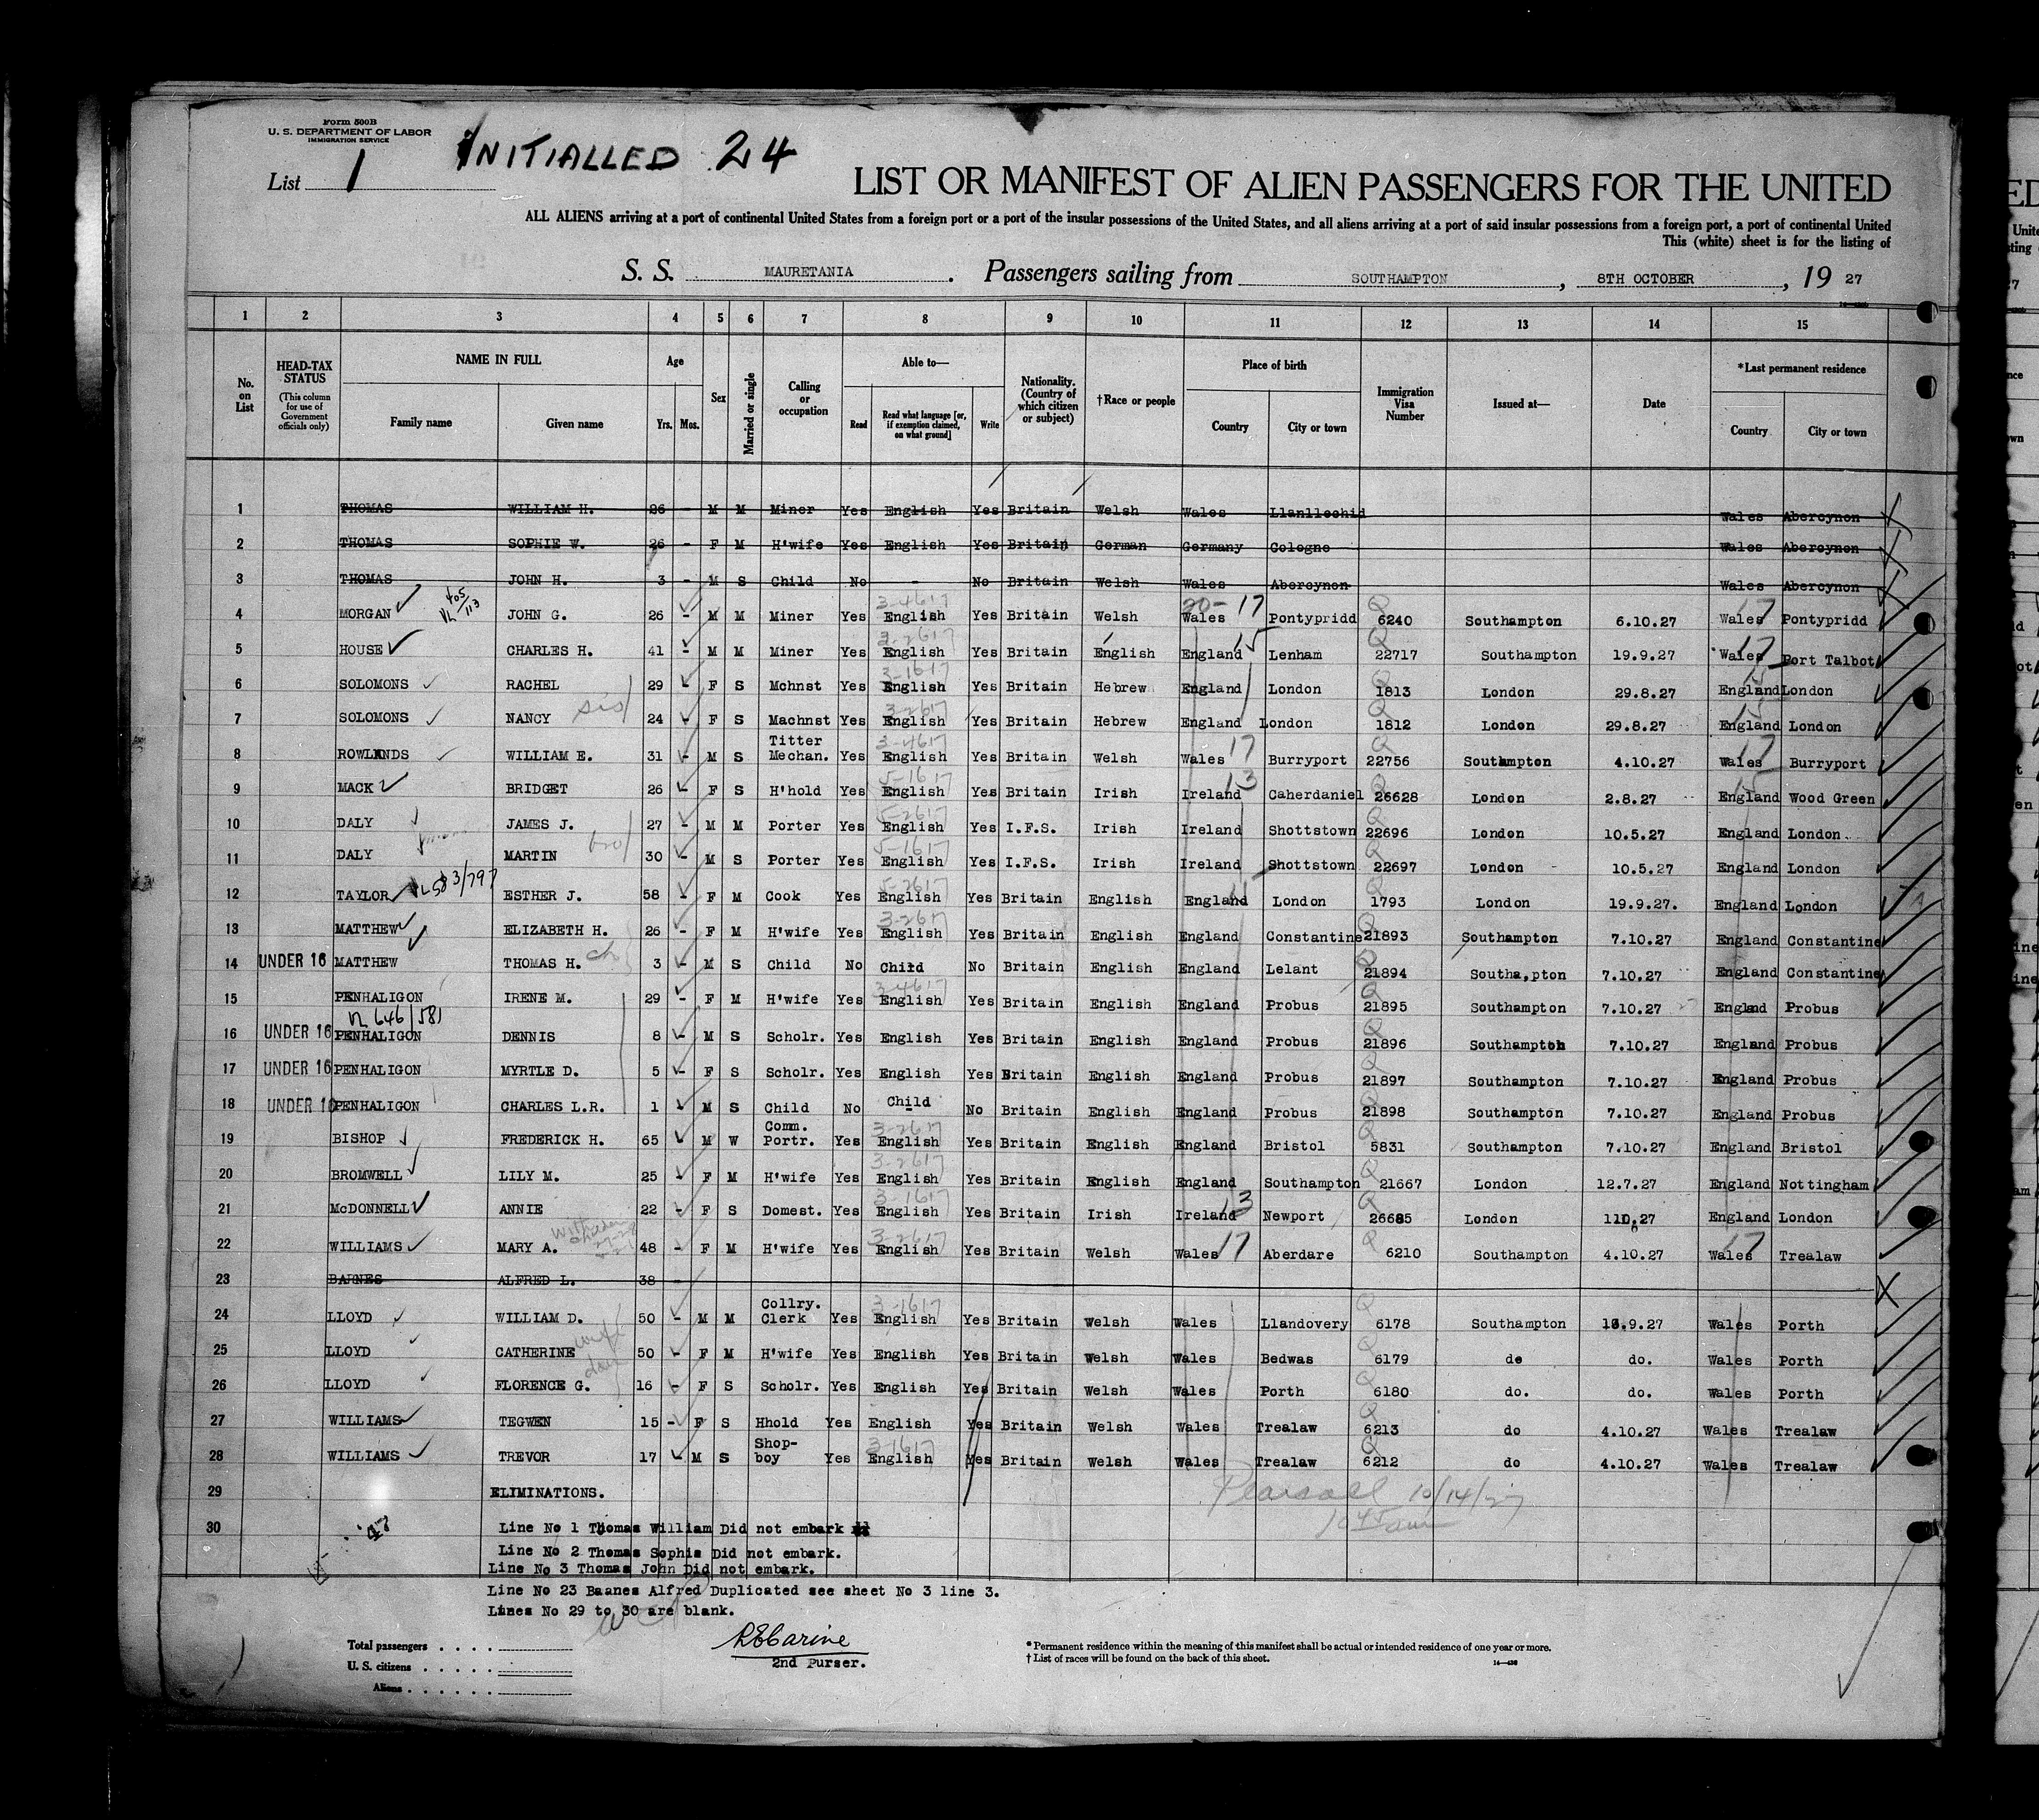 Form 500B
U. S. DEPARTMENT OF LABOR
IMMIGRATION SERVICE
INITIALLED 24
List 1
LIST OR MANIFEST OF ALIEN PASSENGERS FOR THE UNITED
ALL ALIENS arriving at a port of continental United States from a foreign port or a port of the insular possessions of the United States, and all aliens arriving at a port of said insular possessions from a foreign port, a port of continental United
This (white) sheet is for the listing of
S. S. MAURETANIA. Passengers sailing from SOUTHAMPTON, 8TH OCTOBER, 19 27
1 2 3 4 5 6 7 8 9 10 11 12 13 14 15
No. on List
HEAD-TAX STATUS (This column for use of Government officials only)
NAME IN FULL
Family name Given name
Age
Yrs. Mos.
Sex
Married or single
Calling or occupation
Able to—
Read Read what language [or, if exemption claimed, on what ground] Write
Nationality. (Country of which citizen or subject)
†Race or people
Place of birth
Country City or town
Immigration Visa Number
Issued at—
Date
*Last permanent residence
Country City or town
1 THOMAS WILLIAM H. 26 - M M Miner Yes English Yes Britain Welsh Wales Llanllechid Wales Abercynon
2 THOMAS SOPHIE W. 26 - F M H'wife Yes English Yes Britain German Germany Cologne Wales Abercynon
3 THOMAS JOHN H. 3 - M S Child No - No Britain Welsh Wales Abercynon Wales Abercynon
4 MORGAN JOHN G. 26 - M M Miner Yes English Yes Britain Welsh Wales Pontypridd 6240 Southampton 6.10.27 Wales Pontypridd
5 HOUSE CHARLES H. 41 - M M Miner Yes English Yes Britain English England Lenham 22717 Southampton 19.9.27 Wales Port Talbot
6 SOLOMONS RACHEL 29 - F S Mchnst Yes English Yes Britain Hebrew England London 1813 London 29.8.27 England London
7 SOLOMONS NANCY sis 24 - F S Machnst Yes English Yes Britain Hebrew England London 1812 London 29.8.27 England London
8 ROWLANDS WILLIAM E. 31 - M S Titter Mechan. Yes English Yes Britain Welsh Wales Burryport 22756 Southampton 4.10.27 Wales Burryport
9 MACK BRIDGET 26 - F S H'hold Yes English Yes Britain Irish Ireland Caherdaniel 26628 London 2.8.27 England Wood Green
10 DALY JAMES J. 27 - M M Porter Yes English Yes I.F.S. Irish Ireland Shottstown 22696 London 10.5.27 England London
11 DALY MARTIN bro 30 - M S Porter Yes English Yes I.F.S. Irish Ireland Shottstown 22697 London 10.5.27 England London
12 TAYLOR ESTHER J. 58 - F M Cook Yes English Yes Britain English England London 1793 London 19.9.27. England London
13 MATTHEW ELIZABETH H. 26 - F M H'wife Yes English Yes Britain English England Constantine 21893 Southampton 7.10.27 England Constantine
14 UNDER 16 MATTHEW THOMAS H. ch 3 - M S Child No Child No Britain English England Lelant 21894 Southa,pton 7.10.27 England Constantine
15 PENHALIGON IRENE M. 29 - F M H'wife Yes English Yes Britain English England Probus 21895 Southampton 7.10.27 England Probus
VL 646/581
16 UNDER 16 PENHALIGON DENNIS 8 - M S Scholr. Yes English Yes Britain English England Probus 21896 Southampton 7.10.27 England Probus
17 UNDER 16 PENHALIGON MYRTLE D. 5 - F S Scholr. Yes English Yes Britain English England Probus 21897 Southampton 7.10.27 England Probus
18 UNDER 16 PENHALIGON CHARLES L.R. 1 M S Child No Child No Britain English England Probus 21898 Southampton 7.10.27 England Probus
19 BISHOP FREDERICK H. 65 M W Comm. Portr. Yes English Yes Britain English England Bristol 5831 Southampton 7.10.27 England Bristol
20 BROMWELL LILY M. 25 - F M H'wife Yes English Yes Britain English England Southampton 21667 London 12.7.27 England Nottingham
21 McDONNELL ANNIE 22 - F S Domest. Yes English Yes Britain Irish Ireland Newport 26685 London England London
22 WILLIAMS MARY A. 48 - F M H'wife Yes English Yes Britain Welsh Wales Aberdare 6210 Southampton 4.10.27 Wales Trealaw
23 BARNES ALFRED L. 38 -
24 LLOYD WILLIAM D. 50 - M M Collry. Clerk Yes English Yes Britain Welsh Wales Llandovery 6178 Southampton 16.9.27 Wales Porth
25 LLOYD CATHERINE wife 50 - F M H'wife Yes English Yes Britain Welsh Wales Bedwas 6179 do do. Wales Porth
26 LLOYD FLORENCE G. dau 16 - F S Scholr. Yes English Yes Britain Welsh Wales Porth 6180 do. do. Wales Porth
27 WILLIAMS TEGWEN 15 - F S Hhold Yes English Yes Britain Welsh Wales Trealaw 6213 do 4.10.27 Wales Trealaw
28 WILLIAMS TREVOR 17 M S Shop-boy Yes English Yes Britain Welsh Wales Trealaw 6212 do 4.10.27 Wales Trealaw
29 ELIMINATIONS.
Pearsall 10/14/27
30 Line No 1 Thomas William Did not embark
Line No 2 Thomas Sophia Did not embark.
Line No 3 Thomas John Did not embark.
Line No 23 Baanes Alfred Duplicated see sheet No 3 line 3.
Lines No 29 to 30 are blank.
Total passengers
U. S. citizens
Aliens
2nd Purser.
* Permanent residence within the meaning of this manifest shall be actual or intended residence of one year or more.
† List of races will be found on the back of this sheet.